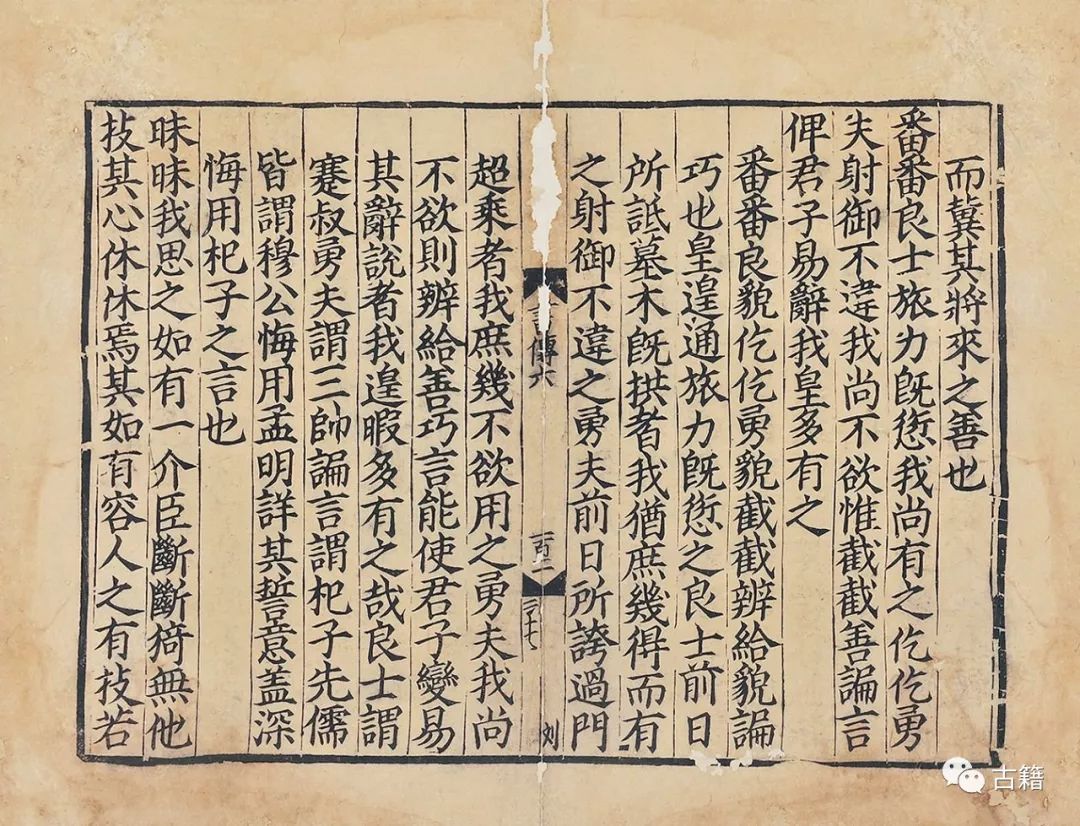 而冀其將來之善也
番番良士旅力旣愆我尚有之仡仡勇
夫射御不違我尚不欲惟截截善諞言
俾君子易辭我皇多有之
番番良貌仡仡勇貌截截辨給貌諞
巧也皇遑通旅力旣愆之良士前日
所詆墓木旣拱者我猶庶幾得而有
之射御不違之勇夫前日所誇過門
傳六
超乘者我庶幾不欲用之勇夫我尚
不欲則辨給善巧言能使君子變易
其辭說者我遑暇多有之哉良士謂
蹇叔勇夫謂三帥諞言謂杞子先儒
皆謂穆公悔用孟明詳其誓意盖深
悔用杞子之言也
昧昧我思之如有一介臣斷斷猗無他
技其心休休焉其如有容人之有技若
刘
古籍